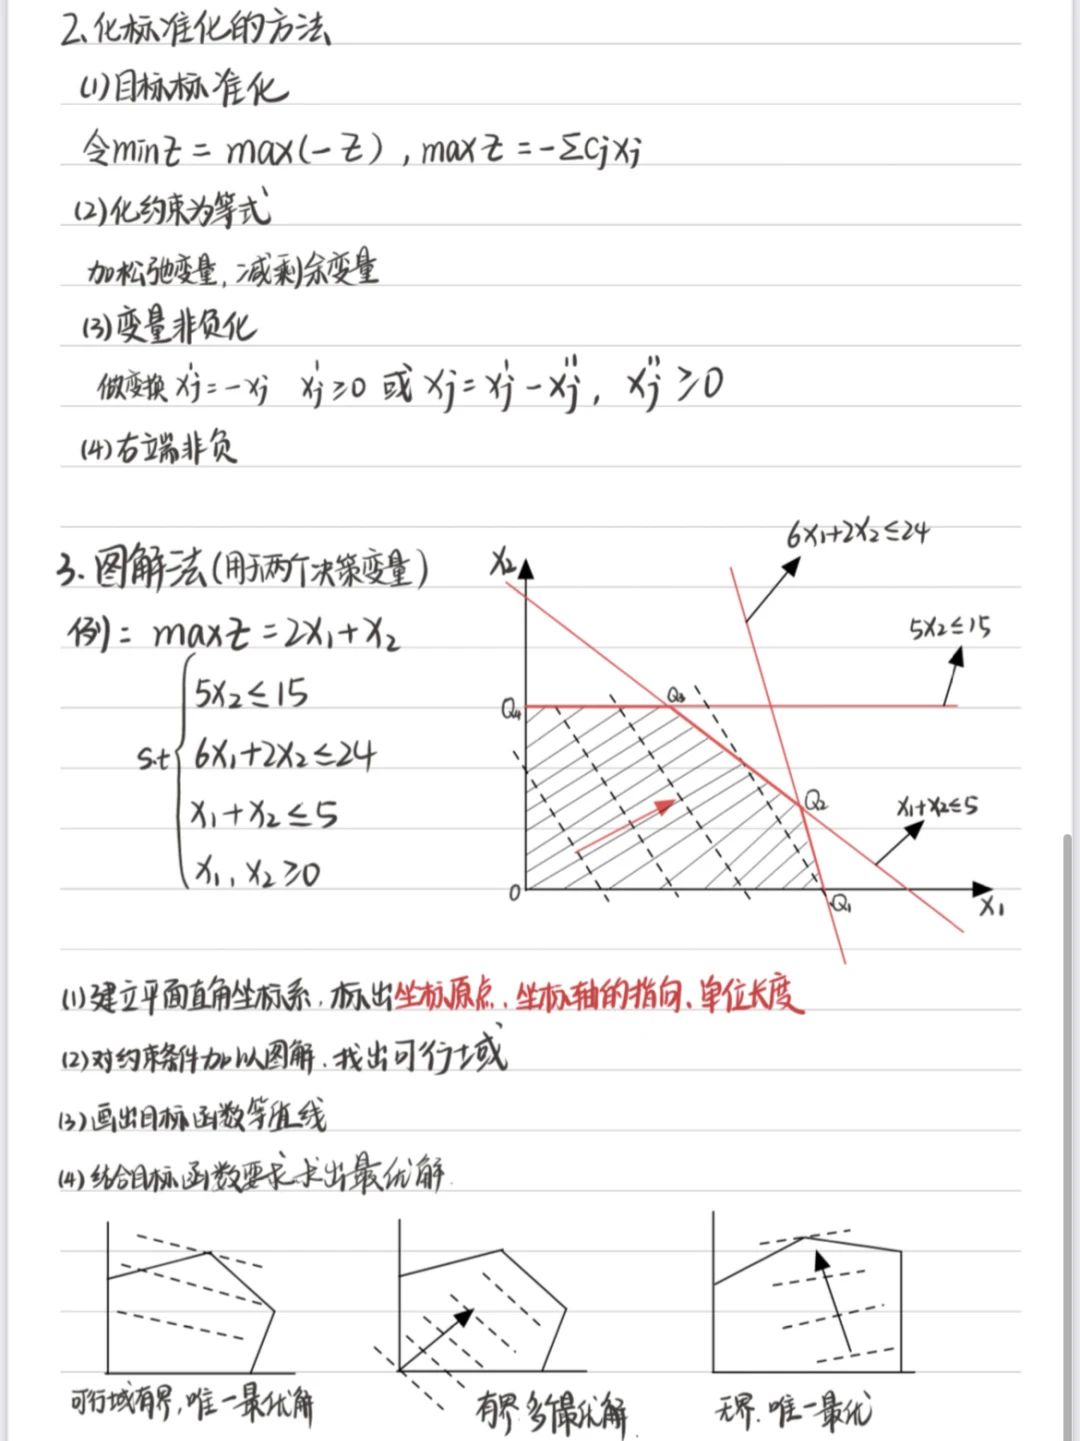 2、化标准化的方法
(1)目标标准化
令minz = max(-z) , maxz = -Σcjxj
(2)化约束为等式
加松弛变量, 减剩余变量
(3)变量非负化
做变换 xj' = -xj xj' ≥ 0 或 xj = xj' - xj'', xj'' ≥ 0
(4)右端非负
3. 图解法(用于两个决策变量)
例: maxz = 2x1+x2
s.t
5x2 ≤ 15
6x1+2x2 ≤ 24
x1+x2 ≤ 5
x1, x2 ≥ 0
x2
6x1+2x2≤24
5x2≤15
Q4
Q3
Q2
x1+x2≤5
0
Q1
x1
(1)建立平面直角坐标系, 标出坐标原点、坐标轴的指向、单位长度
(2)对约束条件加以图解、找出可行域
(3)画出目标函数等值线
(4)结合目标函数要求求出最优解.
可行域有界, 唯一最优解
有界, 多个最优解
无界. 唯一最优